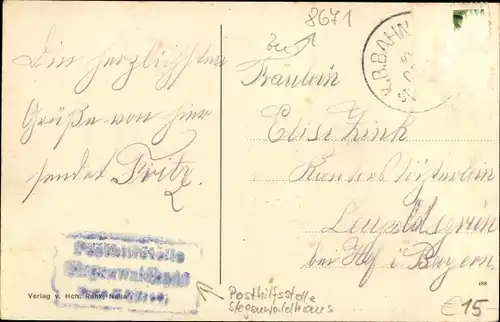 8671
Die herzlichsten
Grüße von hier
sendet Fritz.
Fräulein
Elise Zink
Kantorstöchterlein
Leupoldsgrün
bei Hof i. Bayern.
K.B.BAHN
Posthilfsstelle
Stegenwaldhaus
Verlag v. Hch. Rank, Naila
Posthilfsstelle
Stegenwaldhaus
€15